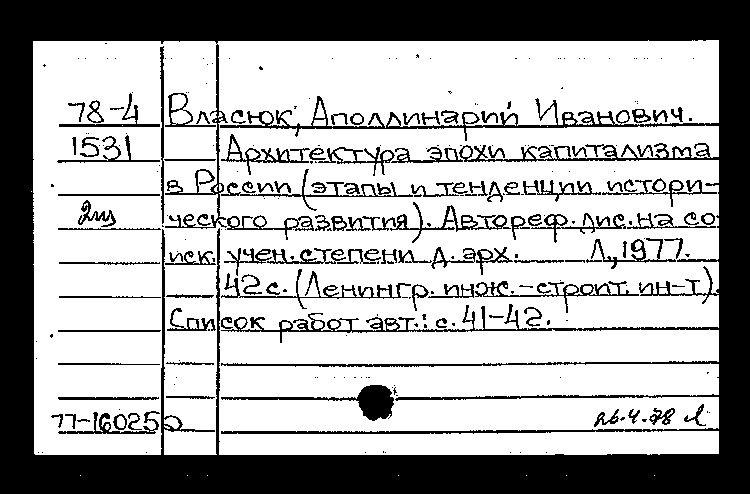 78-4 Власюк, Аполлинарий Иванович.
1531 Архитектура эпохи капитализма
в России (этапы и тенденции истори-
ческого развития). Автореф. дис. на со-
иск. учен. степени д. арх. Л., 1977.
42 с. (Ленингр. инж.-строит. ин-т).
Список работ авт.: с. 41-42.
77-16025 26.4.78 Л